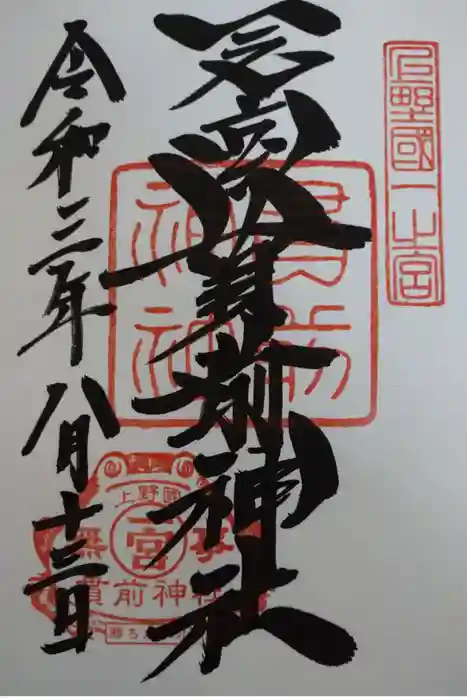 上野國一之宮
一之宮貫前神社
貫前
神社
令和三年八月十三日
上野國
一宮
無事
貫前神社